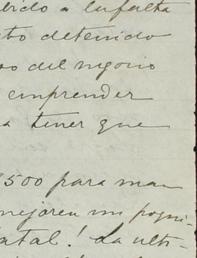 bido a la falta
to detenido
so del negocio
emprender
a tener que
$500 para man
mejoren un poqui-
fatal! La ulti-